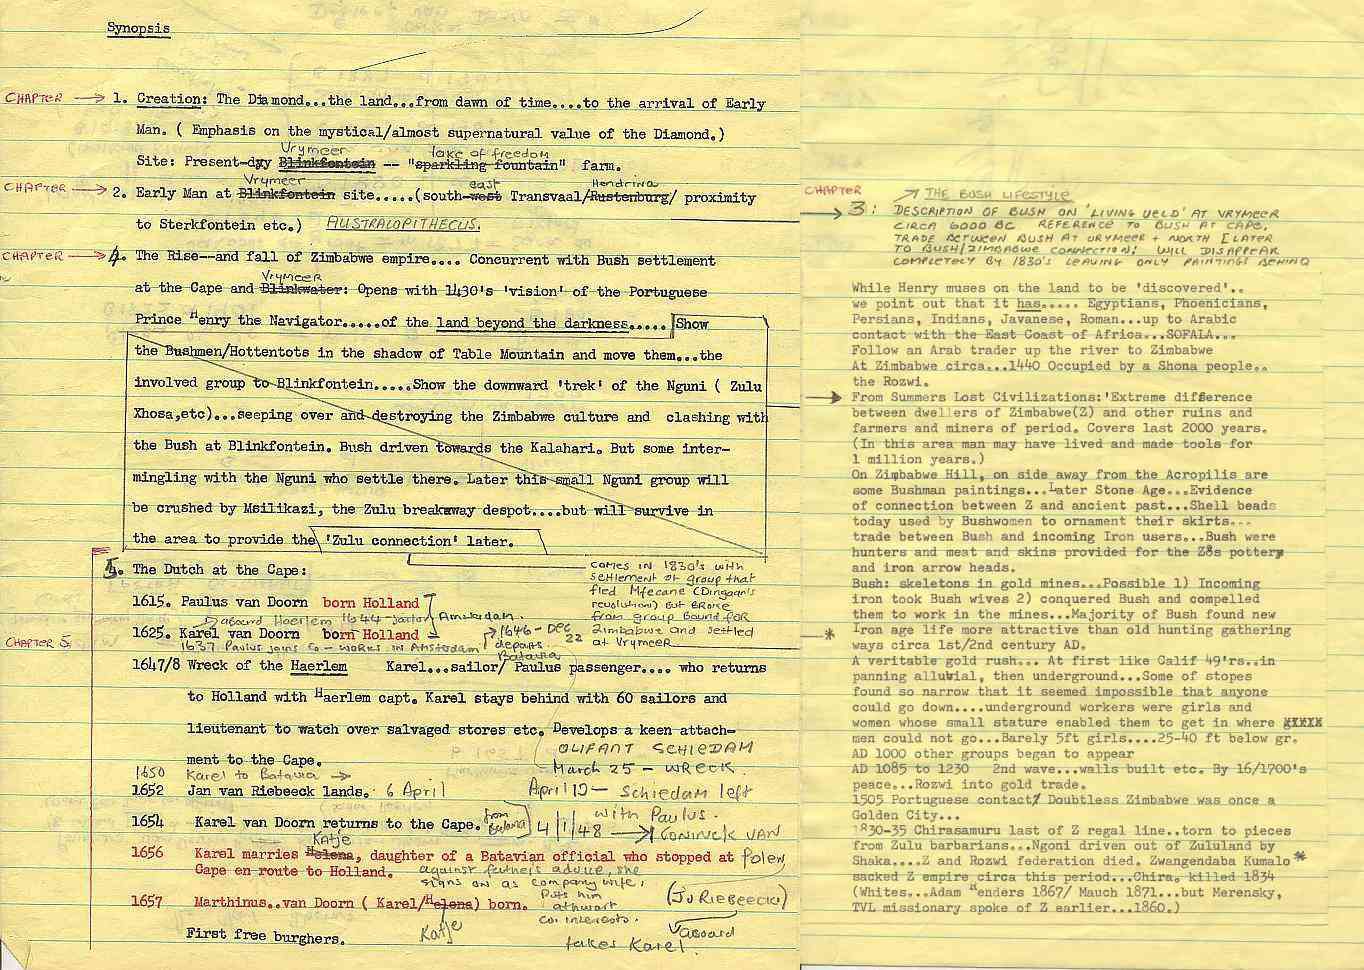 Synopsis
CHAPTER → 1. Creation: The Diamond...the land...from dawn of time....to the arrival of Early
Man. ( Emphasis on the mystical/almost supernatural value of the Diamond.)
Vrymeer lake of freedom
Site: Present-day Blinkfontein -- "sparkling fountain" farm.
Vrymeer east Hendrina
CHAPTER → 2. Early Man at Blinkfontein site.....(south-west Transvaal/Rustenburg/ proximity
to Sterkfontein etc.) AUSTRALOPITHECUS.
CHAPTER → 4. The Rise--and fall of Zimbabwe empire.... Concurrent with Bush settlement
Vrymeer
at the Cape and Blinkwater: Opens with 1430's 'vision' of the Portuguese
Prince Henry the Navigator.....of the land beyond the darkness..... Show
the Bushmen/Hottentots in the shadow of Table Mountain and move them...the
involved group to Blinkfontein.....Show the downward 'trek' of the Nguni ( Zulu
Xhosa,etc)...seeping over and destroying the Zimbabwe culture and clashing with
the Bush at Blinkfontein. Bush driven towards the Kalahari. But some inter-
mingling with the Nguni who settle there. Later this small Nguni group will
be crushed by Msilikazi, the Zulu breakaway despot....but will survive in
the area to provide the 'Zulu connection' later.
COMES IN 1830's WITH
SETTLEMENT OF GROUP THAT
FLED MFECANE (DINGAAN'S
REVOLUTION) BUT BROKE
FROM GROUP BOUND FOR
ZIMBABWE AND SETTLED
AT VRYMEER
5. The Dutch at the Cape:
1615. Paulus van Doorn born Holland
aboard Haerlem 1644 - sailor Amsterdam.
CHAPTER 5
1625. Karel van Doorn born Holland
1646 - DEC 22 departs Batavia
1637 Paulus joins Co - WORKS IN Amstdam
1647/8 Wreck of the Haerlem Karel...sailor/ Paulus passenger.... who returns
to Holland with Haerlem capt. Karel stays behind with 60 sailors and
lieutenant to watch over salvaged stores etc. Develops a keen attach-
ment to the Cape.
OLIFANT SCHIEDAM
March 25 - WRECK.
1650 Karel to Batavia →
1652 Jan van Riebeeck lands. 6 April April 10 - Schiedam left
with Paulus.
1654 Karel van Doorn returns to the Cape. from Batavia 4/1/48 → CONINCK VAN
Polen
Katje
1656 Karel marries Helena, daughter of a Batavian official who stopped at
Cape en route to Holland. against father's advice, she
signs on as company wife,
Puts him
athwart
co. interests.
1657 Marthinus..van Doorn ( Karel/Helena) born. (JV RIEBEECK)
Katje
aboard
First free burghers. takes Karel
CHAPTER → 3: THE BUSH LIFESTYLE
DESCRIPTION OF BUSH ON 'LIVING VELD' AT VRYMEER
CIRCA 6000 BC REFERENCE TO BUSH AT CAPE.
TRADE BETWEEN BUSH AT VRYMEER + NORTH [LATER
TO BUSH/ZIMBABWE CONNECTION: WILL DISAPPEAR
COMPLETELY BY 1830'S LEAVING ONLY PAINTINGS BEHIND
While Henry muses on the land to be 'discovered'..
we point out that it has..... Egyptians, Phoenicians,
Persians, Indians, Javanese, Roman...up to Arabic
contact with the East Coast of Africa...SOFALA...
Follow an Arab trader up the river to Zimbabwe
At Zimbabwe circa...1440 Occupied by a Shona people..
the Rozwi.
→ From Summers Lost Civilizations:'Extreme difference
between dwellers of Zimbabwe(Z) and other ruins and
farmers and miners of period. Covers last 2000 years.
(In this area man may have lived and made tools for
1 million years.)
On Zimbabwe Hill, on side away from the Acropilis are
some Bushman paintings...Later Stone Age...Evidence
of connection between Z and ancient past...Shell beads
today used by Bushwomen to ornament their skirts...
trade between Bush and incoming Iron users...Bush were
hunters and meat and skins provided for the Z8s pottery
and iron arrow heads.
Bush: skeletons in gold mines...Possible 1) Incoming
iron took Bush wives 2) conquered Bush and compelled
them to work in the mines...Majority of Bush found new
* Iron age life more attractive than old hunting gathering
ways circa 1st/2nd century AD.
A veritable gold rush... At first like Calif 49'rs..in
panning alluvial, then underground...Some of stopes
found so narrow that it seemed impossible that anyone
could go down....underground workers were girls and
women whose small stature enabled them to get in where xxxxx
men could not go...Barely 5ft girls....25-40 ft below gr.
AD 1000 other groups began to appear
AD 1085 to 1230 2nd wave...walls built etc. By 16/1700's
peace...Rozwi into gold trade.
1505 Portuguese contact/ Doubtless Zimbabwe was once a
Golden City...
1830-35 Chirasamuru last of Z regal line..torn to pieces
from Zulu barbarians...Ngoni driven out of Zululand by
Shaka....Z and Rozwi federation died. Zwangendaba Kumalo *
sacked Z empire circa this period...Chira. killed 1834
(Whites...Adam Henders 1867/ Mauch 1871...but Merensky,
TVL missionary spoke of Z earlier...1860.)